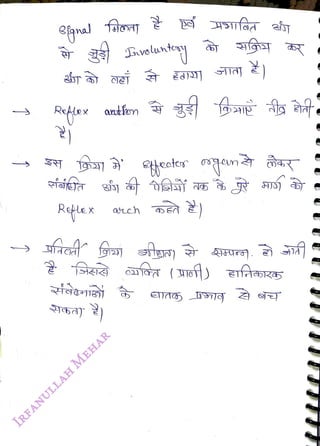 Signal मिलता है एवं प्रभावित अंग
से जुड़ी Involuntory को सक्रिय कर
अंग को वहाँ से हटाया जाता है।
→ Reflex से जुड़ी क्रियाएँ तीव्र होती
है।
→ इस क्रिया में effector organ से लेकर
संबंधित अंग की पेशियों तक के पुरे मार्ग को
Reflex arch कहते है।
→ प्रतिवर्ती क्रिया शीघ्रता से सम्पन्न हो जाती
है जिससे व्यक्ति (प्राणी) हानिकारक
संवेदनाओं के घातक प्रभाव से बच
सकता है।
IRFANULLAH MEHAR